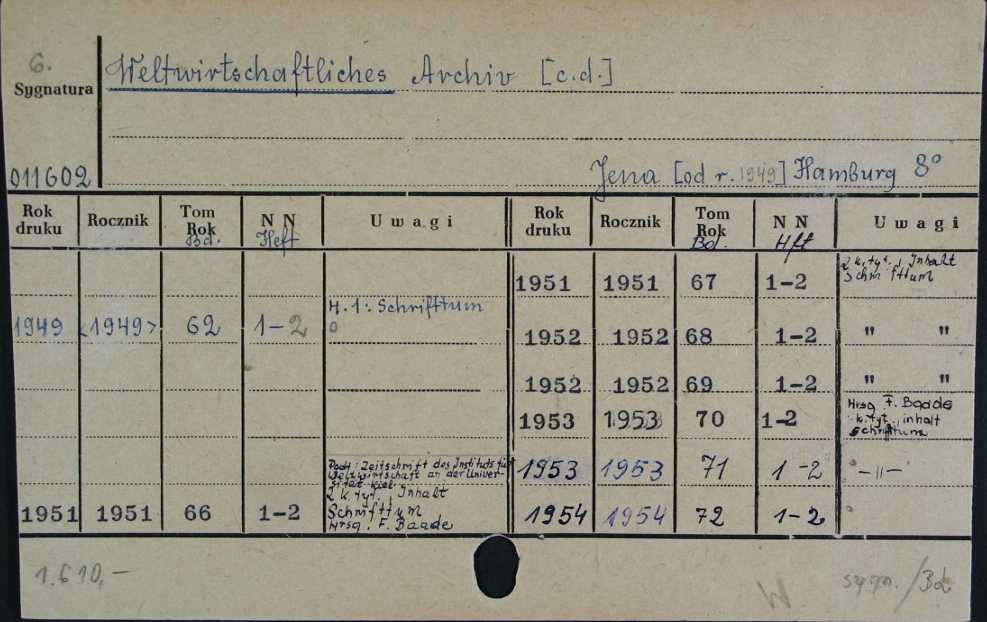 6.
Sygnatura
Weltwirtschaftliches Archiv [c.d.]
011602
Jena [od r. 1949] Hamburg 8°
Rok druku Rocznik Tom Rok Bd. N N Heft Uwagi Rok druku Rocznik Tom Rok Bd. N N Hft Uwagi
1949 <1949> 62 1-2 H. 1: Schrifttum
0
Podt: Zeitschrift des Instituts für
Weltwirtschaft an der Univer-
sität Kiel.
1951 1951 66 1-2 2 k. tyt., Inhalt
Schrifttum
Hrsg. F. Baade
1951 1951 67 1-2 2 k. tyt., Inhalt
Schrifttum
1952 1952 68 1-2 " "
1952 1952 69 1-2 " "
1953 1953 70 1-2 Hrsg F. Baade
k. tyt., inhalt
schrifttum
1953 1953 71 1-2 -"-
1954 1954 72 1-2
1.610,-
W
sygn./Bd